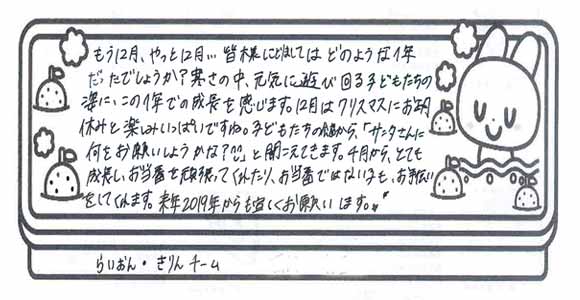 もう12月、やっと12月… 皆様にとりましてはどのような1年
だったでしょうか？寒さの中、元気に遊び回る子どもたちの
姿に、この1年での成長を感じます。12月はクリスマスにお正月
休みと楽しみいっぱいですね。子どもたちの間から、「サンタさんに
何をお願いしようかな？」と聞こえてきます。4月から、とても
成長し、お当番を頑張ってくれたり、お当番ではない子も、お手伝い
をしてくれます。来年2019年からも宜しくお願いします。
らいおん・きりんチーム